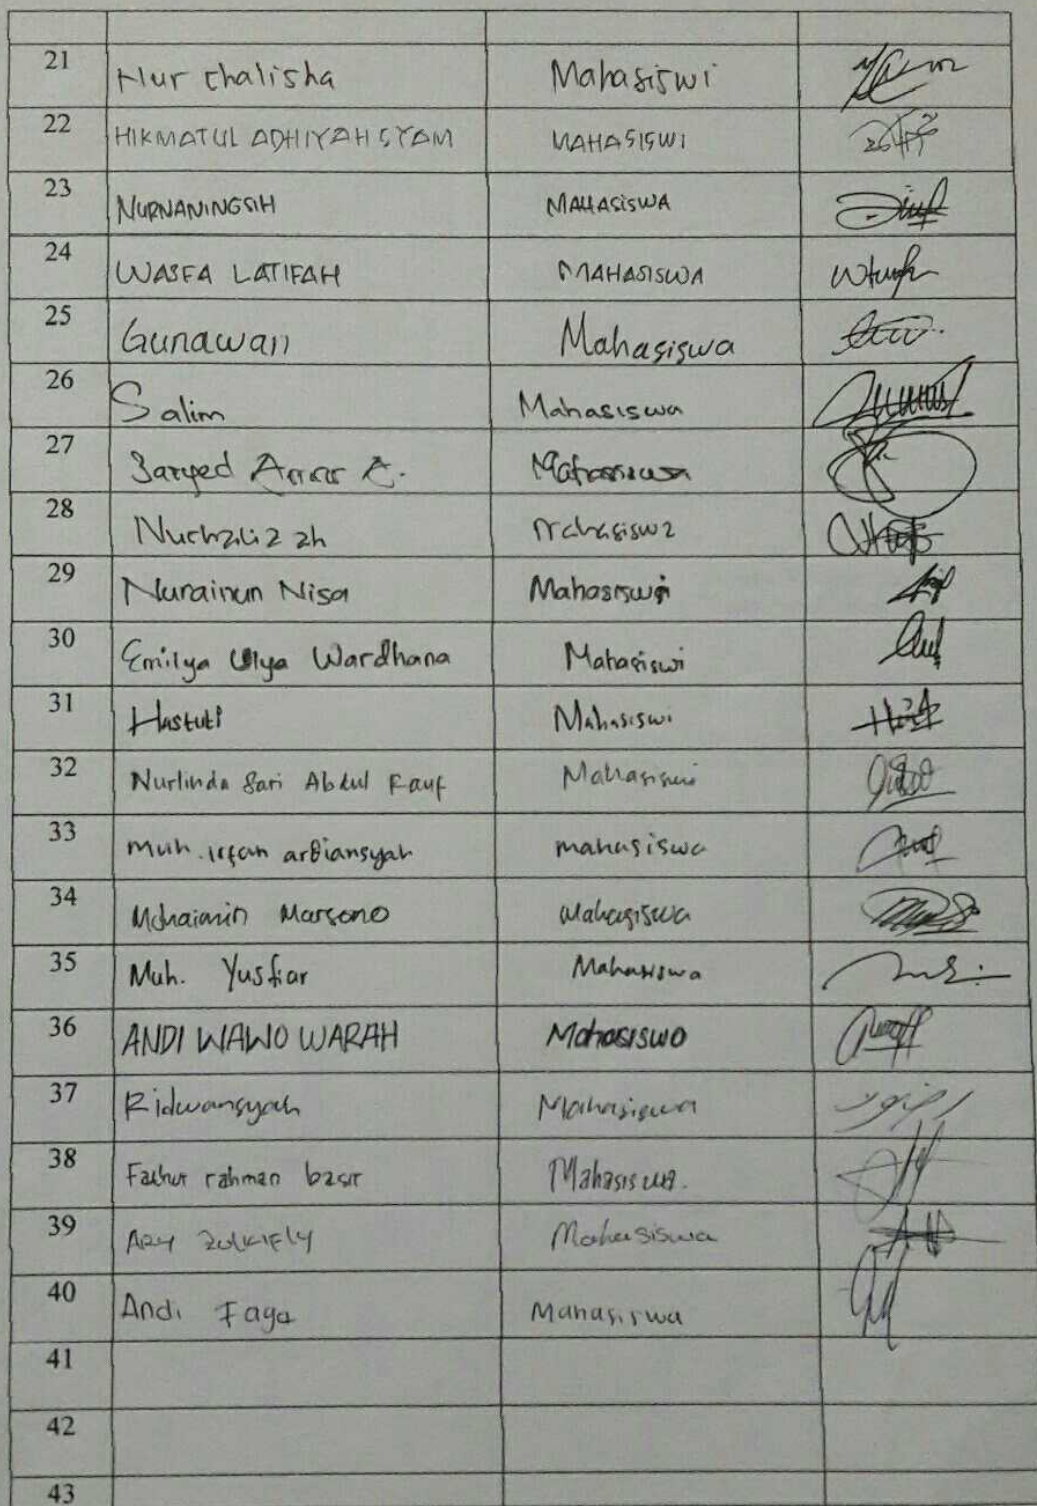 21 Nur Chalisha Mahasiswi
22 HIKMATUL ADHIYAH SYAM MAHASISWI
23 NURNANINGSIH MAHASISWA
24 WASFA LATIFAH MAHASISWA
25 Gunawan Mahasiswa
26 Salim Mahasiswa
27 Mahasiswa
28 Nurhalizah Mahasiswa
29 Nurainun Nisa Mahasiswi
30 Emilya Ulya Wardhana Mahasiswi
31 Hastuti Mahasiswi
32 Nurlinda Sari Abdul Rauf Mahasiswi
33 Muh. irfan ardiansyah mahasiswa
34 Muhaimin Marsono Mahasiswa
35 Muh. Yusfiar Mahasiswa
36 ANDI WAWO WARAH Mahasiswa
37 Ridwansyah Mahasiswa
38 Fathur rahman basir Mahasiswa.
39 ARY ZULKIFLY Mahasiswa
40 Andi Faga Mahasiswa
41
42
43